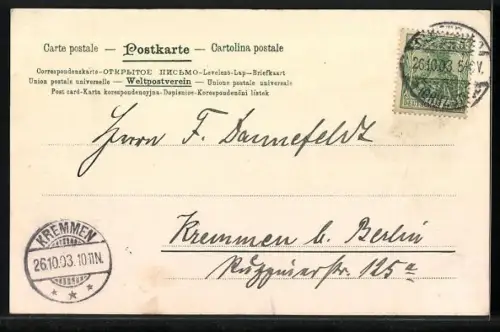 Carte postale — Postkarte — Cartolina postale
Correspondenzkarte-ОТКРЫТОЕ ПИСЬМО-Levelezö-Lap-Briefkaart
Union postale universelle — Weltpostverein — Unione postale universale
Post card-Karta korespondencyjna-Dopisnice-Korespondenční lístek
26.10.03. 5-6V.
Herrn F. Dannefeldt
Kremmen b. Berlin
Ruppinerstr. 125a
KREMMEN
26.10.03. 10-11N.